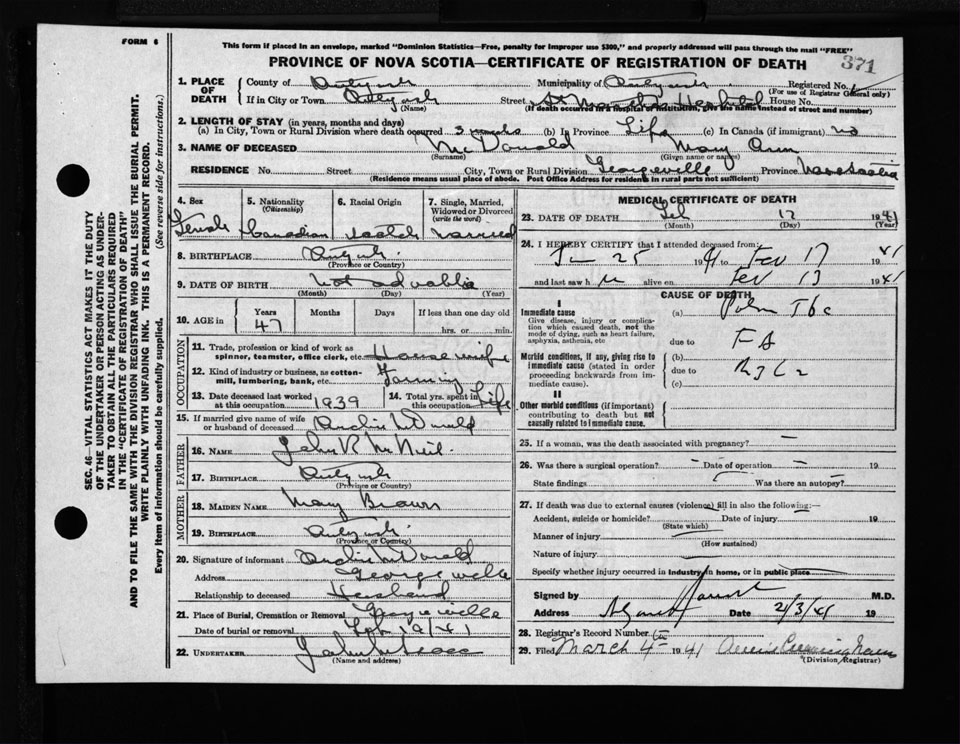 FORM 6
This form if placed in an envelope, marked "Dominion Statistics—Free, penalty for improper use $300," and properly addressed will pass through the mail "FREE"
PROVINCE OF NOVA SCOTIA—CERTIFICATE OF REGISTRATION OF DEATH
371
1. PLACE OF DEATH County of Antigonish Municipality of Antigonish Registered No.
(For use of Registrar General only)
If in City or Town Antigonish Street St Martha's Hospital House No.
(Name) (If death occurred in a hospital or institution, give the name instead of street and number)
2. LENGTH OF STAY (in years, months and days)
(a) In City, Town or Rural Division where death occurred 3 weeks (b) In Province Life (c) In Canada (if immigrant) no
3. NAME OF DECEASED McDonald Mary Ann
(Surname) (Given name or names)
RESIDENCE No. Street City, Town or Rural Division Georgeville Province Nova Scotia
(Residence means usual place of abode. Post Office Address for residents in rural parts not sufficient)
4. Sex Female
5. Nationality (Citizenship) Canadian
6. Racial Origin Scotch
7. Single, Married, Widowed or Divorced (write the word) Married
8. BIRTHPLACE
(Province or Country)
9. DATE OF BIRTH Not
(Month) (Day) (Year)
10. AGE in Years Months Days If less than one day
47 hrs. or min.
OCCUPATION
11. Trade, profession or kind of work as spinner, teamster, office clerk, etc. Housewife
12. Kind of industry or business, as cotton-mill, lumbering, bank, etc. Farming
13. Date deceased last worked at this occupation 1939
14. Total yrs. spent in this occupation Life
15. If married give name of wife or husband of deceased Archie McDonald
FATHER
16. NAME John R McNeil
17. BIRTHPLACE Antigonish
(Province or Country)
MOTHER
18. MAIDEN NAME Mary Brown
19. BIRTHPLACE Antigonish
(Province or Country)
20. Signature of informant Archie McDonald
Address Georgeville
Relationship to deceased Husband
21. Place of Burial, Cremation or Removal Georgeville
Date of burial or removal Feb 19/41
22. UNDERTAKER
(Name and address)
MEDICAL CERTIFICATE OF DEATH
23. DATE OF DEATH Feb 17 1941
(Month) (Day) (Year)
24. I HEREBY CERTIFY that I attended deceased from:
Jan 25 1941 to Feb 17 1941
and last saw h alive on Feb 13 1941
CAUSE OF DEATH
I
Immediate cause
Give disease, injury or complication which caused death, not the mode of dying, such as heart failure, asphyxia, asthenia, etc
(a) Pulm Tbc
due to
Morbid conditions, if any, giving rise to immediate cause (stated in order proceeding backwards from immediate cause).
(b)
due to
(c)
II
Other morbid conditions (if important) contributing to death but not causally related to immediate cause.
25. If a woman, was the death associated with pregnancy? –
26. Was there a surgical operation? – Date of operation – 19
State findings Was there an autopsy?
27. If death was due to external causes (violence) fill in also the following:–
Accident, suicide or homicide? Date of injury 19
(State which)
Manner of injury
(How sustained)
Nature of injury
Specify whether injury occurred in industry, in home, or in public place
Signed by M.D.
Address Date 2/3/41 19
28. Registrar's Record Number
29. Filed March 4th 1941 Cunningham
(Division Registrar)
SEC. 46—VITAL STATISTICS ACT MAKES IT THE DUTY
OF THE UNDERTAKER OR PERSON ACTING AS UNDERTAKER TO OBTAIN ALL THE PARTICULARS REQUIRED
IN THE "CERTIFICATE OF REGISTRATION OF DEATH"
AND TO FILE THE SAME WITH THE DIVISION REGISTRAR WHO SHALL ISSUE THE BURIAL PERMIT.
WRITE PLAINLY WITH UNFADING INK. THIS IS A PERMANENT RECORD.
Every item of information should be carefully supplied. (See reverse side for instructions.)